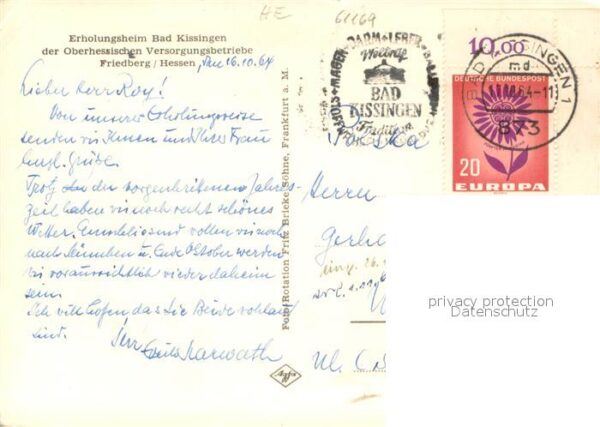 HE
61169
Erholungsheim Bad Kissingen
der Oberhessischen Versorgungsbetriebe
Friedberg / Hessen, den 16.10.64
Lieber Herr Roy!
Von unserer Erholungsreise
senden wir Ihnen und Ihrer Frau
herzl. Grüße.
Trotz der vorgeschrittenen Jahres-
zeit haben wir noch recht schönes
Wetter. Anschließend wollen wir noch
nach München u. Ende Oktober werden
wir voraussichtlich wieder daheim
sein.
Ich will hoffen das Sie Beide wohlauf
sind.
Ihr
Foto/Rotation Fritz Bricke Söhne, Frankfurt a. M.
Agfa
MAGEN DARM LEBER
Weltruf
BAD
KISSINGEN
Tradition
10,00
BAD KISSINGEN 1
md
64-11
873
DEUTSCHE BUNDESPOST
20
EUROPA
Herrn
Gerha
privacy protection
Datenschutz